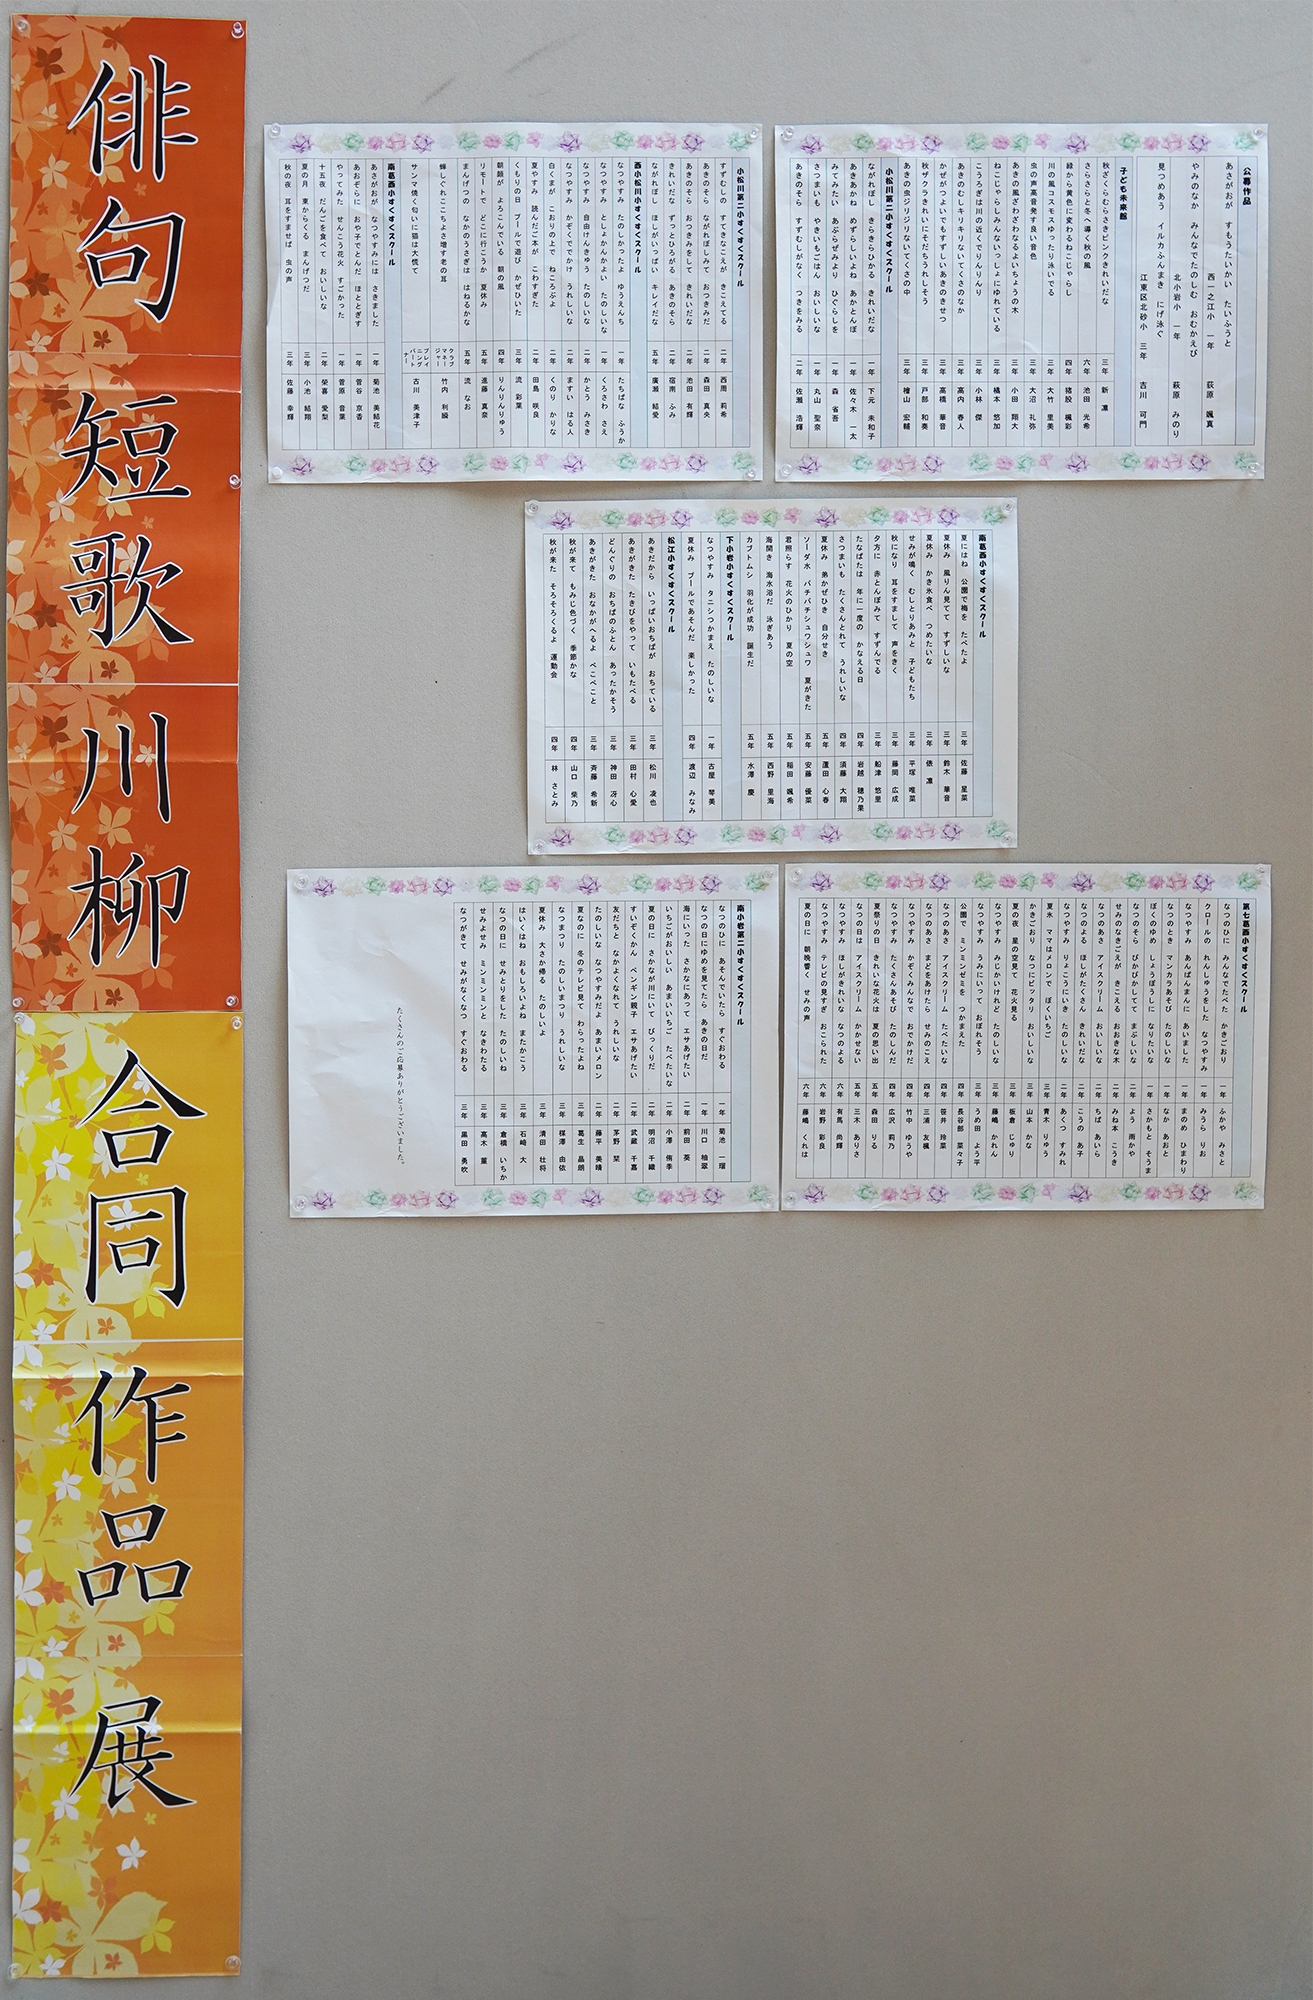 俳句短歌川柳合同作品展
公募作品
あさがおが すもうたいかい たいふうと
西一之江小 一年 荻原 颯真
やみのなか みんなでたのしむ おむかえび
北小岩小 一年 萩原 みのり
見つめあう イルカふんまき にげ泳ぐ
江東区北砂小 三年 吉川 可門
子ども未来館
秋ざくらむらさきピンクきれいだな 三年 新 凛
さらさらと冬へ導く秋の風 六年 池田 光希
緑から黄色に変わるねこじゃらし 四年 猪股 楓彩
川の風コスモスゆったり泳いでる 三年 大竹 里美
虫の声高音発す良い音色 三年 大沼 礼弥
あきの風ざわざわなるよいちょうの木 三年 小田 翔大
ねこじゃらしみんないっしょにゆれている 三年 橘本 悠加
こうろぎは川の近くでりんりん 三年 小林 傑
あきのむしキリキリないてくさのなか 三年 高内 春人
かぜがつよいでもすずしいあきのきせつ 三年 高橋 華音
秋ザクラきれいにそだちうれしそう 三年 戸部 和奏
あきの虫ジリジリないてくさの中 三年 檜山 宏輔
小松川第二小すくすくスクール
ながれぼし きらきらひかる きれいだな 一年 下元 未和子
あきあかね めずらしいよね あかとんぼ 一年 佐々木 一太
みてみたい あぶらぜみより ひぐらしを 一年 森 省吾
さつまいも やきいもごはん おいしいな 一年 丸山 聖奈
あきのそら すずむしがなく つきをみる 二年 佐瀬 浩輝
小松川第二小すくすくスクール
すずむしの すてきなこえが きこえてる 二年 西周 莉希
あきのそら ながれぼしみて おつきみだ 二年 森田 真央
あきのそら おつきみをして きれいだな 二年 池田 有輝
きれいだな ずっとひろがる あきのそら 二年 宿南 ふみ
ながれぼし ほしがいっぱい キレイだな 五年 廣瀬 結愛
西小松川小すくすくスクール
なつやすみ たのしかったよ ゆうえんち 一年 たちばな ふうか
なつやすみ としょかんかよい たのしいな 一年 くろさわ さえ
なつやすみ 自由けんきゅう たのしいな 二年 かとう みさき
なつやすみ かぞくででかけ うれしいな 二年 ますい はる人
白くまが こおりの上で ねころぶよ 二年 くのり かりな
夏やすみ 読んだご本が こわすぎた 二年 田島 咲良
くもりの日 プールで遊び かぜひいた 三年 流 彩葉
朝顔が よろこんでいる 朝の風 四年 りんりんりゅう
リモートで どこに行こうか 夏休み 五年 進藤 真奈
まんげつの なかのうさぎは はねるかな 五年 流 なお
蝉しぐれここちよさ増す老の耳 クラブマネージャー 竹内 利綱
サンマ焼く匂いに猫は大慌て プレイニングパートナー 古川 美津子
南葛西小すくすくスクール
あさがおが なつやすみには さきました 一年 菊池 美結花
あおぞらに おや子でとんだ ほととぎす 一年 菅谷 京香
やってみた せんこう花火 すごかった 一年 菅原 音葉
十五夜 だんごを食べて おいしいな 二年 榮喜 愛梨
夏の月 東からくる まんげつだ 三年 小池 結翔
秋の夜 耳をすませば 虫の声 三年 佐藤 幸輝
南葛西小すくすくスクール
夏にはね 公園で梅を たべたよ 三年 佐藤 星菜
夏休み 風りん見て すずしいな 三年 鈴木 華音
夏休み かき氷食べ つめたいな 三年 俵 凛
せみが鳴く むしとりあみと 子どもたち 三年 平塚 唯菜
秋になり 耳をすまして 声をきく 三年 藤岡 広成
夕方に 赤とんぼみて すずんでる 三年 船津 悠里
たなばたは 年に一度の かなえる日 四年 岩越 穂乃果
さつまいも たくさんとれて うれしいな 四年 須藤 大翔
夏休み 弟かぜひき 自分せき 五年 蘆田 心春
ソーダ水 パチパチシュワシュワ 夏がきた 五年 安藤 優菜
君照らす 花火のひかり 夏の空 五年 稲田 颯希
海開き 海水浴だ 泳ぎあう 五年 西野 里海
カブトムシ 羽化が成功 誕生だ 五年 水澤 慶
下小岩小すくすくスクール
なつやすみ タニシつかまえ たのしいな 一年 古屋 琴美
夏休み プールであそんだ 楽しかった 四年 渡辺 みなみ
松江小すくすくスクール
あきだから いっぱいおちばが おちている 三年 松川 凌也
あきがきた たきびをやって いもたべる 三年 田村 心愛
どんぐりの おちばのふとん あったかそう 三年 神田 冴心
あきがきた おなかがへるよ ぺこぺこと 三年 斉藤 希新
秋が来て もみじ色づく 季節かな 四年 山口 柴乃
秋が来た そろそろくるよ 運動会 四年 林 さとみ
第七葛西小すくすくスクール
なつのひに みんなでたべた かきごおり 一年 ふかや みさと
クロールの れんしゅうをした なつやすみ 一年 みうら りお
なつやすみ あんぱんまんに あいました 一年 まのめ ひまわり
なつのとき マンカラあそび たのしいな 一年 なか あおと
ぼくのゆめ しょうぼうしに なりたいな 一年 さかもと そうま
なつのそら ぴかぴかしてて まぶしいな 二年 よう 雨かや
せみのなきごえが きこえる おおきな木 二年 みね本 こうき
なつのあさ アイスクリーム おいしいな 二年 ちば あいら
なつのよる ほしがたくさん きれいだな 二年 こうの あ子
なつやすみ りょこうにいき たのしいな 二年 あくつ すみれ
夏氷 ママはメロンで ぼくいちご 三年 青木 りゅう
かきごおり なつにピッタリ おいしいな 三年 山本 かな
夏の夜 星の空見て 花火見る 三年 板倉 じゅり
なつやすみ みじかいけれど たのしいな 三年 藤嶋 かれん
なつやすみ うみにいって おぼれそう 三年 うめ田 よう平
公園で ミンミンゼミを つかまえた 四年 長谷部 菜々子
なつのあさ アイスクリーム たべたいな 四年 笹井 玲菜
なつのあさ まどをあけたら せみのこえ 四年 三浦 友楓
なつやすみ かぞくみんなで おでかけだ 四年 竹中 ゆうや
なつやすみ たくさんあそび たのしんだ 四年 広沢 莉乃
夏祭りの日 きれいな花火は 夏の思い出 五年 森田 りる
なつの日は アイスクリーム かかせない 五年 三木 ありさ
なつやすみ ほしがきれいな なつのよる 六年 有馬 尚輝
なつやすみ テレビの見すぎ おこられた 六年 岩野 彩良
夏の日に 朝晩響く せみの声 六年 藤嶋 くれは
南小岩第二小すくすくスクール
なつのひに あそんでいたら すぐおわる 一年 菊池 一瑠
なつの日にゆめを見てたら あきの日だ 一年 川口 柚翠
海にいった さかなにあって エサあげたい 二年 前田 葵
いちごがおいしい あまいいちご たべたいな 二年 小澤 侑季
夏の日に さかなが川にいて びっくりだ 二年 明沼 千織
すいぞくかん ペンギン親子 エサあげたい 二年 武蔵 千嘉
友だちと なかよくなれて うれしいな 二年 茅野 栞
たのしいな なつやすみだよ あまいメロン 二年 藤平 美晴
夏なのに 冬のテレビ見て わらったよね 三年 葛生 晶朗
なつまつり たのしいまつり うれしいな 三年 槎澤 由依
夏休み 大さか帰る たのしいよ 三年 清田 壮将
はいくはね おもしろいよね またかこう 三年 石崎 大
なつの日に せみとりをした たのしいね 三年 倉橋 いちか
せみよせみ ミンミンミンと なきわたる 三年 高木 菫
なつがきて せみがなくなつ すぐおわる 三年 黒田 勇吹
たくさんのご応募ありがとうございました。